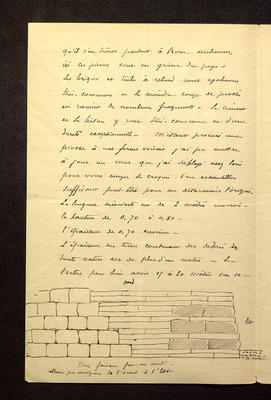 qu'il s'en trouve partout à Rome, seulement
ici en pierre sous en grison du pays -
Les briques et tuiles à rebord sont également
très communes et le moindre coup de pioche
en ramène de nombreux fragments - Le ciment
et le béton y sont très communs et d'une
dureté exceptionnelle - M'étant procuré une
pioche à une ferme voisine j'ai pu mettre
à jour un mur que j'ai déblayé assez loin
pour vous envoyer le croquis d'un échantillon
suffisant peut être pour en déterminer l'origine.
La longueur découverte est de 2 mètres environ -
la hauteur de 0,70 à 0,80 -
l'épaisseur de 0,70 environ -
L'épaisseur des terres contenant des débris de
toute nature est de plus d'un mètre - le
tertre peut bien avoir 15 à 20 mètres sur 10 -
nord
Est
Mur faisant face au midi -
allant par conséquent de l'ouest à l'Est